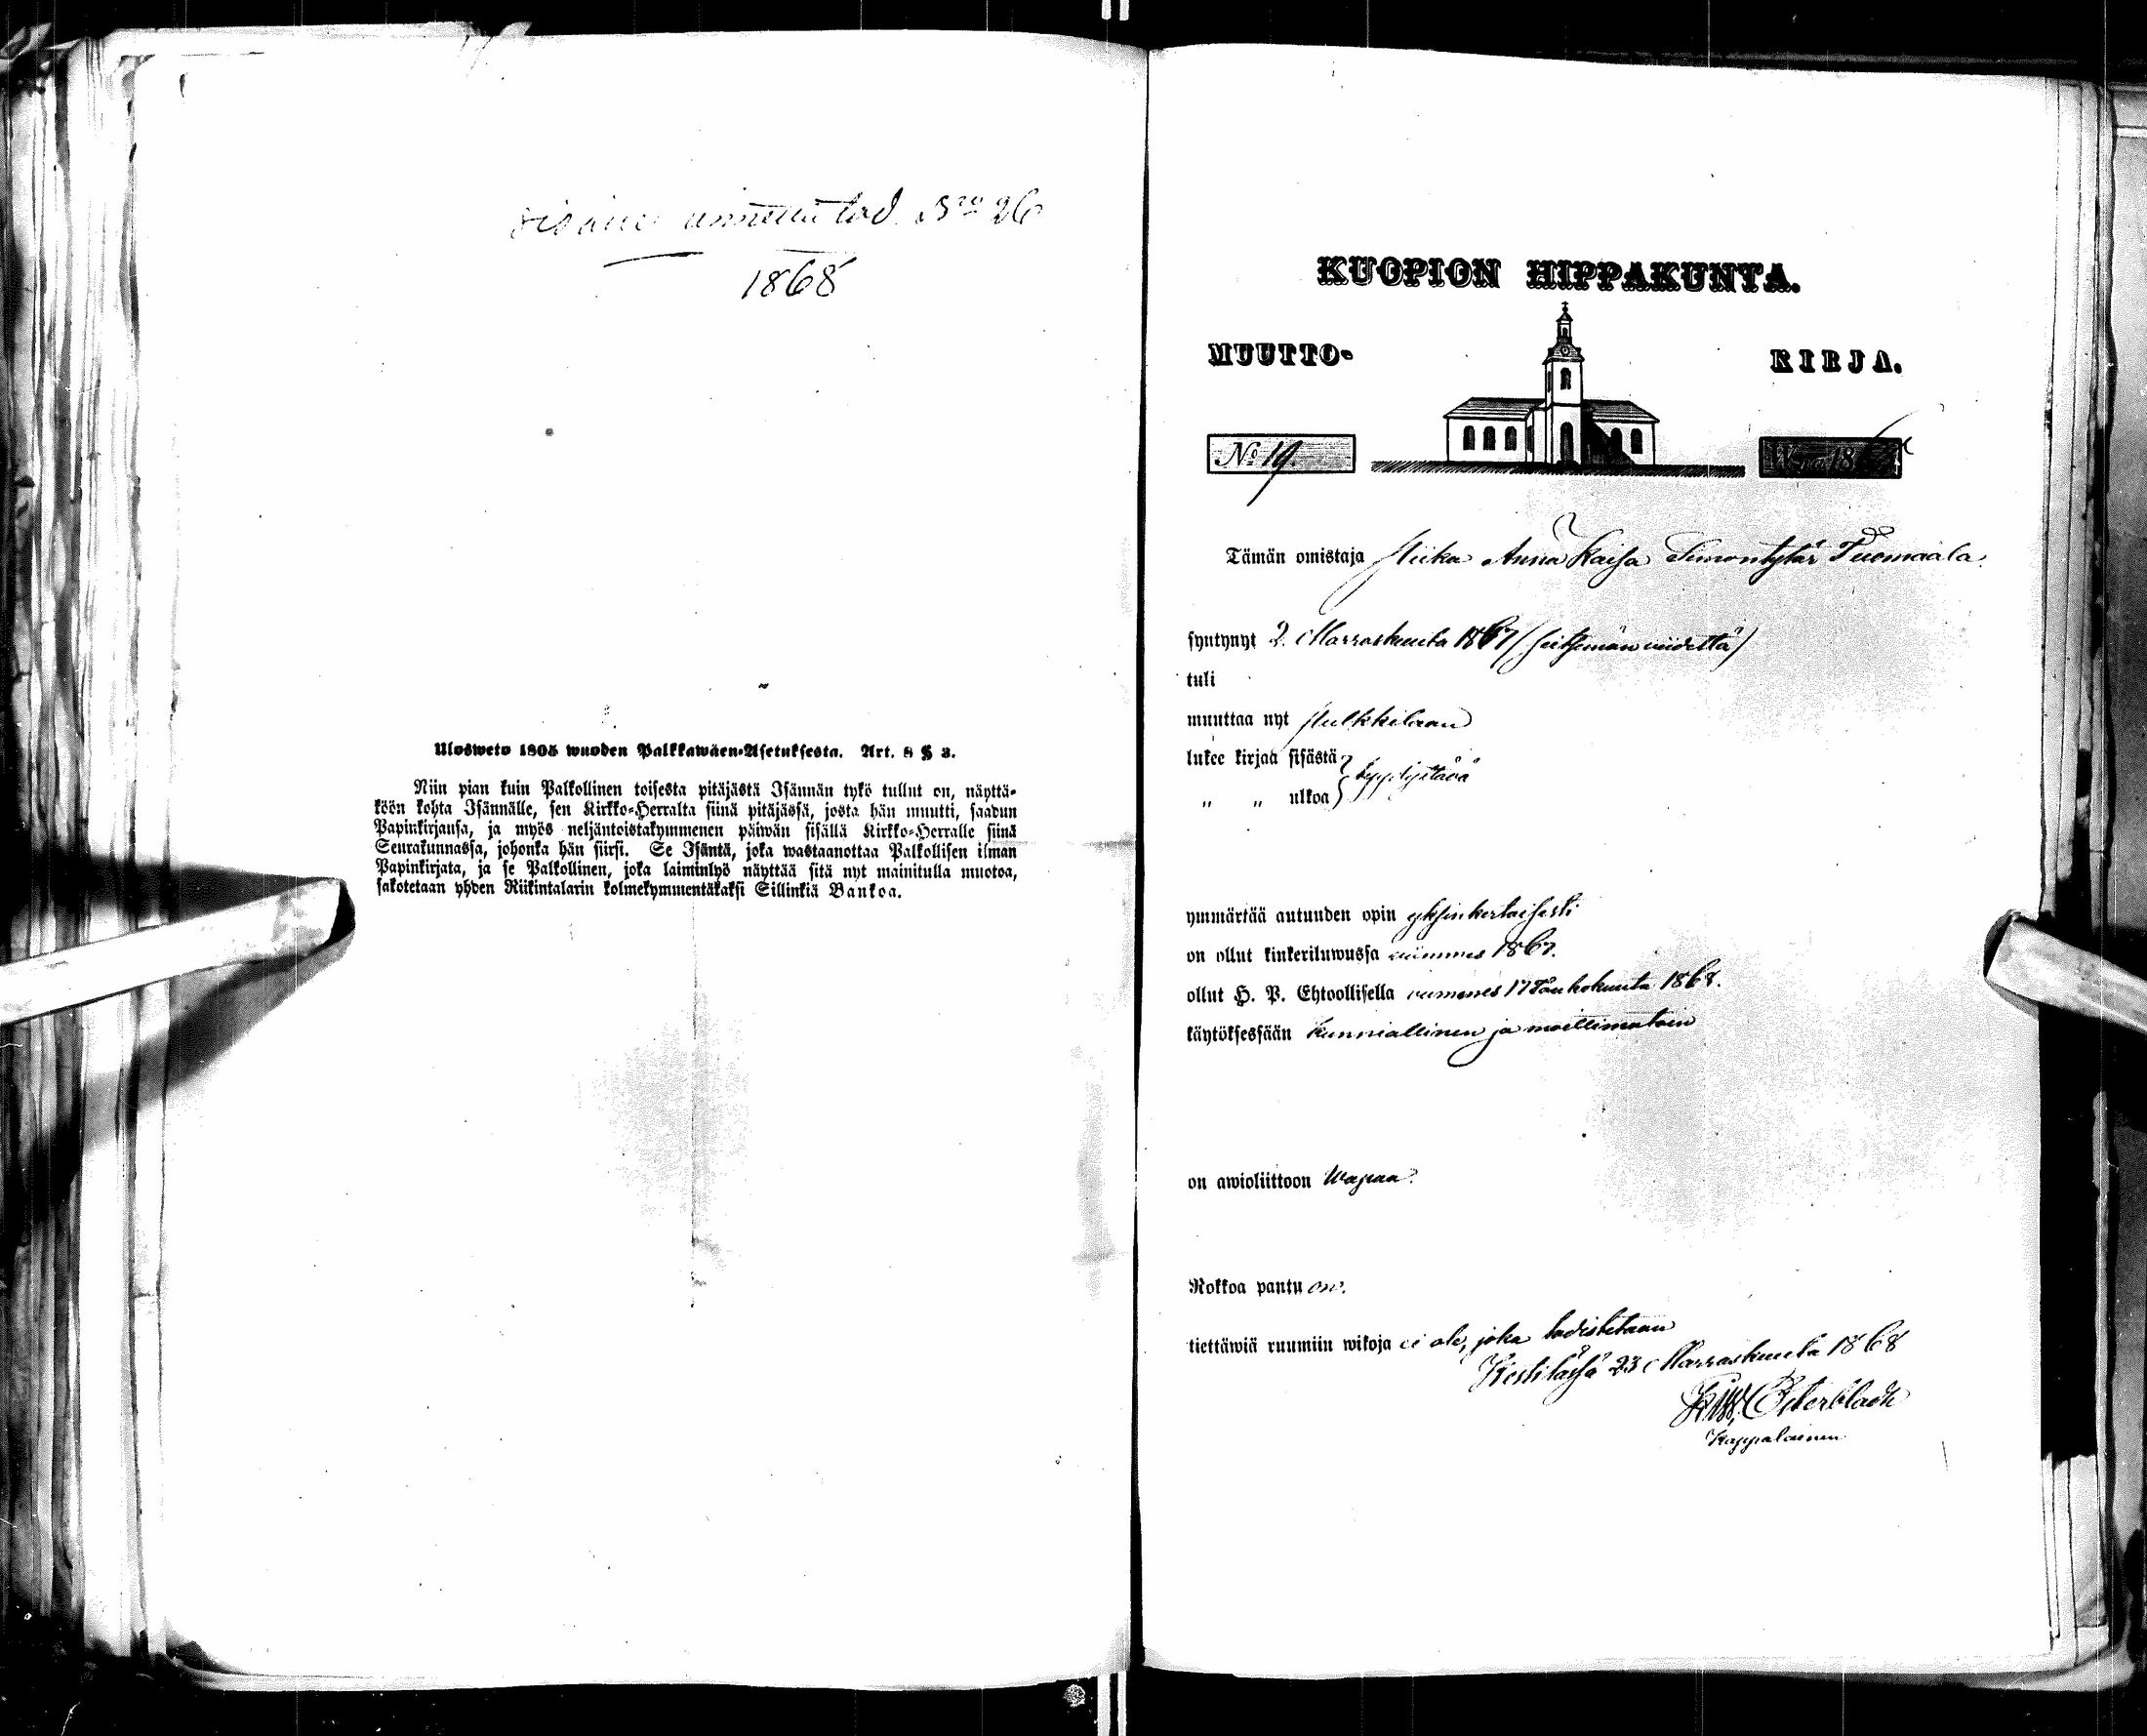 Sisään annettu tod. Nro 26
1868
Ulosweto 1805 wuoden Palkkawäen-Asetuksesta. Art. 8 § 3.
Niin pian kuin Palkollinen toisesta pitäjästä Isännän tykö tullut on, näyttä-
köön kohta Isännälle, sen Kirkko-Herralta siinä pitäjässä, josta hän muutti, saadun
Papinkirjansa, ja myös neljäntoistakymmenen päiwän sisällä Kirkko-Herralle siinä
Seurakunnassa, johonka hän siirsi. Se Isäntä, joka wastaanottaa Palkollisen ilman
Papinkirjata, ja se Palkollinen, joka laiminlyö näyttää sitä nyt mainitulla muotoa,
sakotetaan yhden Riikintalarin kolmekymmentäkaksi Sillinkiä Bankoa.
KUOPION HIPPAKUNTA.
MUUTTO- KIRJA.
No 19. W:na 18
Tämän omistaja Piika Anna Kaisa Simontytär Tuomaala
syntynyt 2. Marraskuuta 1847 (seitsemän viidettä)
tuli
muuttaa nyt Pulkkilaan
lukee kirjaa sisästä
" " ulkoa } hyydyttävä
ymmärtää autuuden opin yksinkertaisesti
on ollut kinkeriluwussa viimmes 1867.
ollut H. P. Ehtoollisella viimmes 17 Toukokuuta 1868.
käytöksessään kunniallinen ja moittimatoin
on awioliittoon Wapaa
Rokkoa pantu on.
tiettäwiä ruumiin wikoja ei ole, joka todistetaan
Kestilässä 23 Marraskuuta 1868
Österbladh
Kappalainen